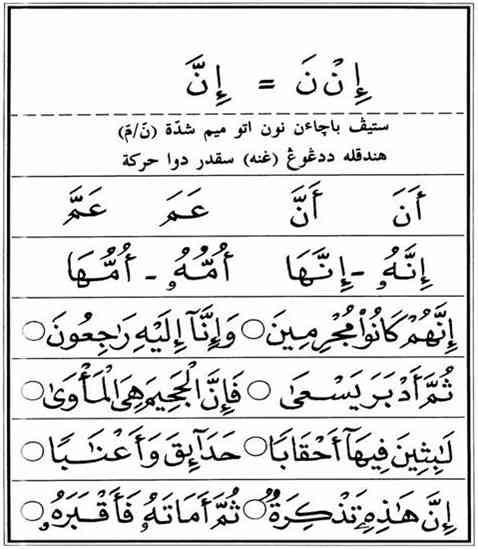 إِنْ نَ = إِنَّ
ستيڤ باچاءن نون اتو ميم شدّة (نّ/مّ)
هندقله ددڠوڠ (غنه) سقدر دوا حركة
أَنَ أَنَّ عَمَ عَمَّ
إِنَّهُۥ - إِنَّهَا أُمُّهُۥ - أُمُّهَا
إِنَّهُمْ كَانُوا۟ مُجْرِمِينَ ○ وَإِنَّآ إِلَيْهِ رَٰجِعُونَ ○
ثُمَّ أَدْبَرَ يَسْعَىٰ ○ فَإِنَّ الْجَحِيمَ هِىَ الْمَأْوَىٰ ○
لَٰبِثِينَ فِيهَآ أَحْقَابًا ○ حَدَآئِقَ وَأَعْنَٰبًا ○
إِنَّ هَٰذِهِۦ تَذْكِرَةٌ ○ ثُمَّ أَمَاتَهُۥ فَأَقْبَرَهُۥ ○